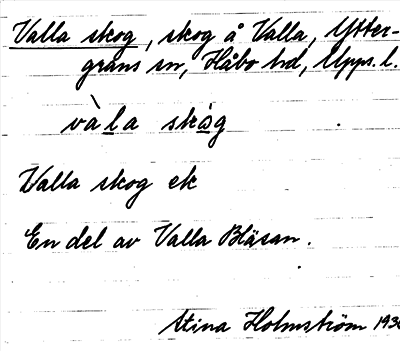 Valla skog, skog å Valla, Ytter-
gräns sn, Håbo hd, Upps. l.
và l a skò̲g
Valla skog ek
En del av Valla Bläsan.
Stina Holmström 193